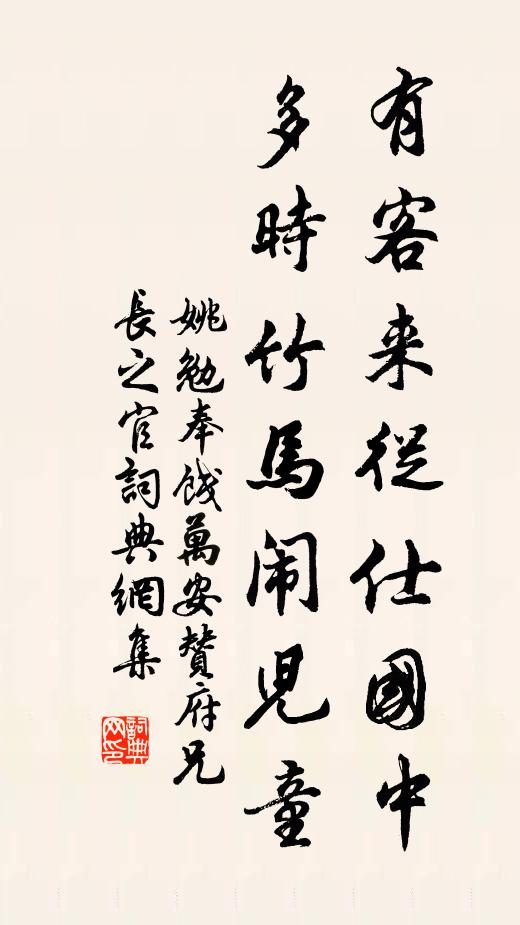 有客来從仕國中
多時竹馬闹兒童
姚勉奉餞萬安贊府兄
長之官詞典網集
詞典
网印